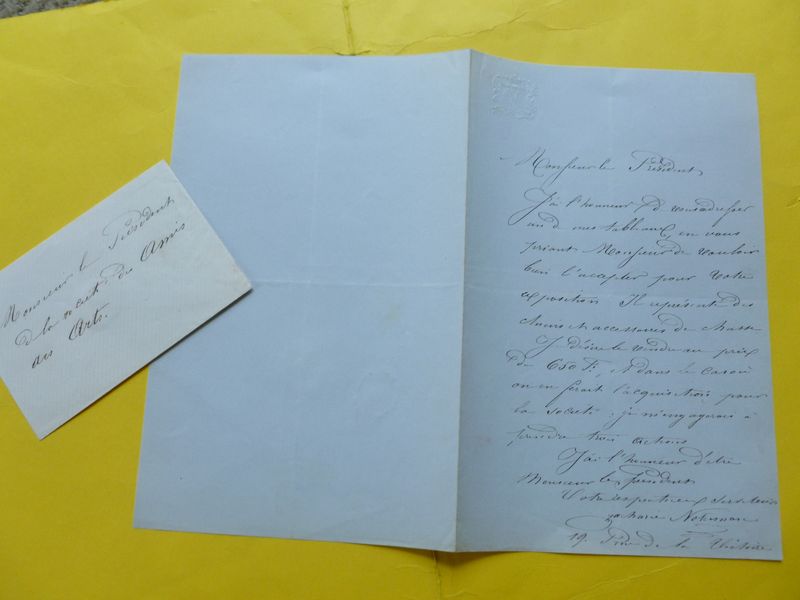 Monsieur le Président
de la société des Amis
des Arts.
Monsieur le Président
J'ai l'honneur de vous adresser
un de mes tableaux, en vous
priant Monsieur de vouloir
bien l'accepter pour votre
exposition Il représente des
chiens et accessoires de chasse
Je désire le vendre au prix
de 650 F, et dans le cas où
on en ferait l'acquisition pour
la société : je m'engagerais à
prendre trois actions
J'ai l'honneur d'être
Monsieur le président
Votre respectueux serviteur
Zacharie Noterman
19. Rue de la Victoire